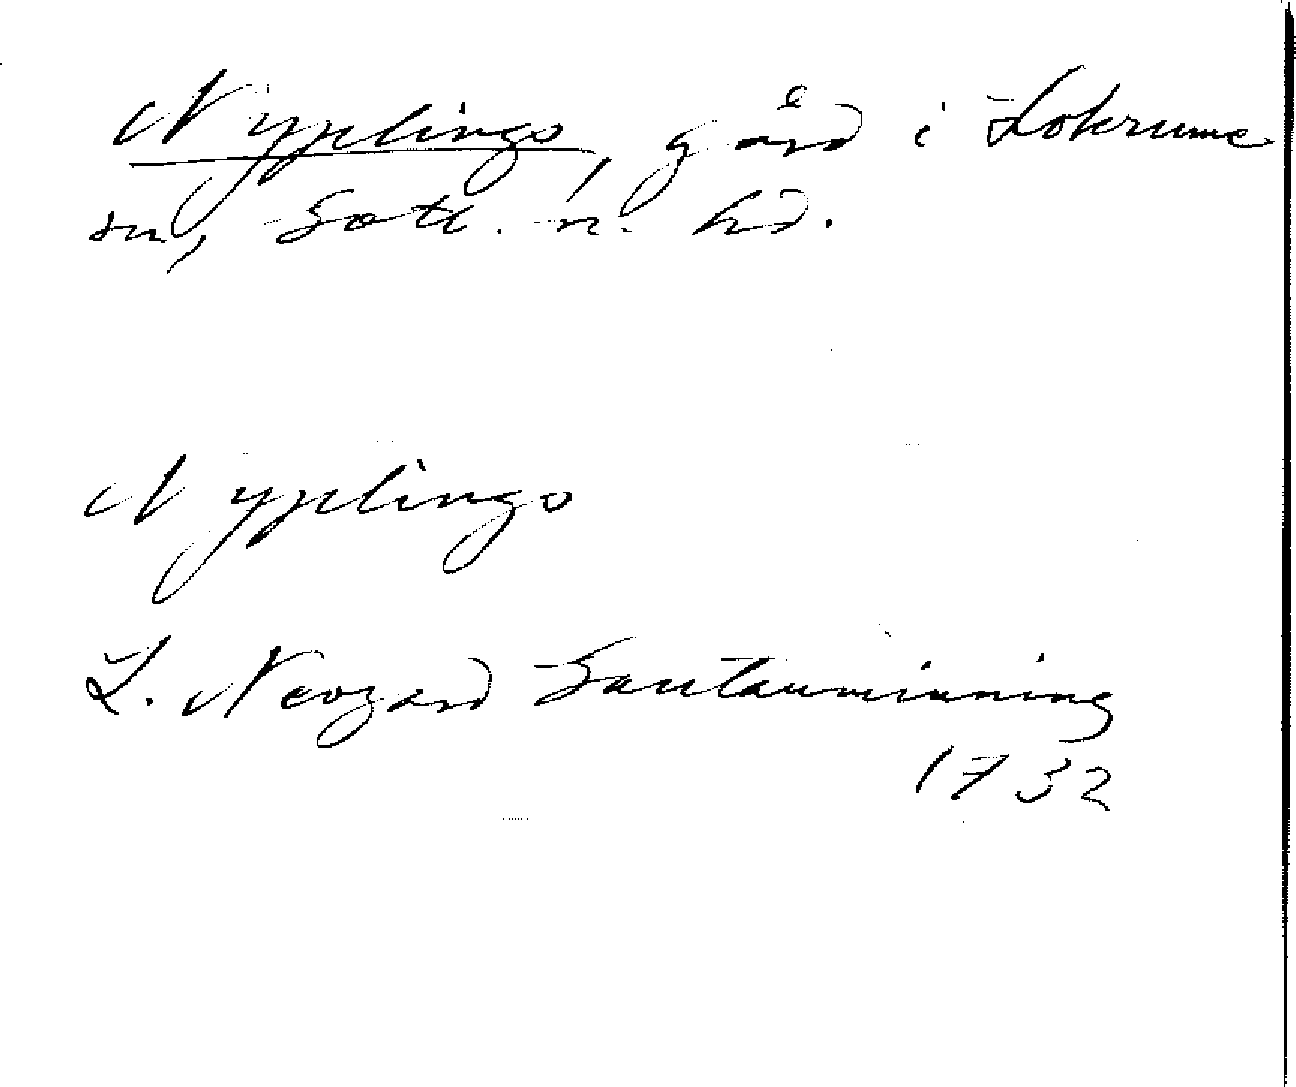 Nyplingo, gård i Lokrume
sn, Gotl. n. hd.
Nyplingo
L. Neogard Gautauminning
1732